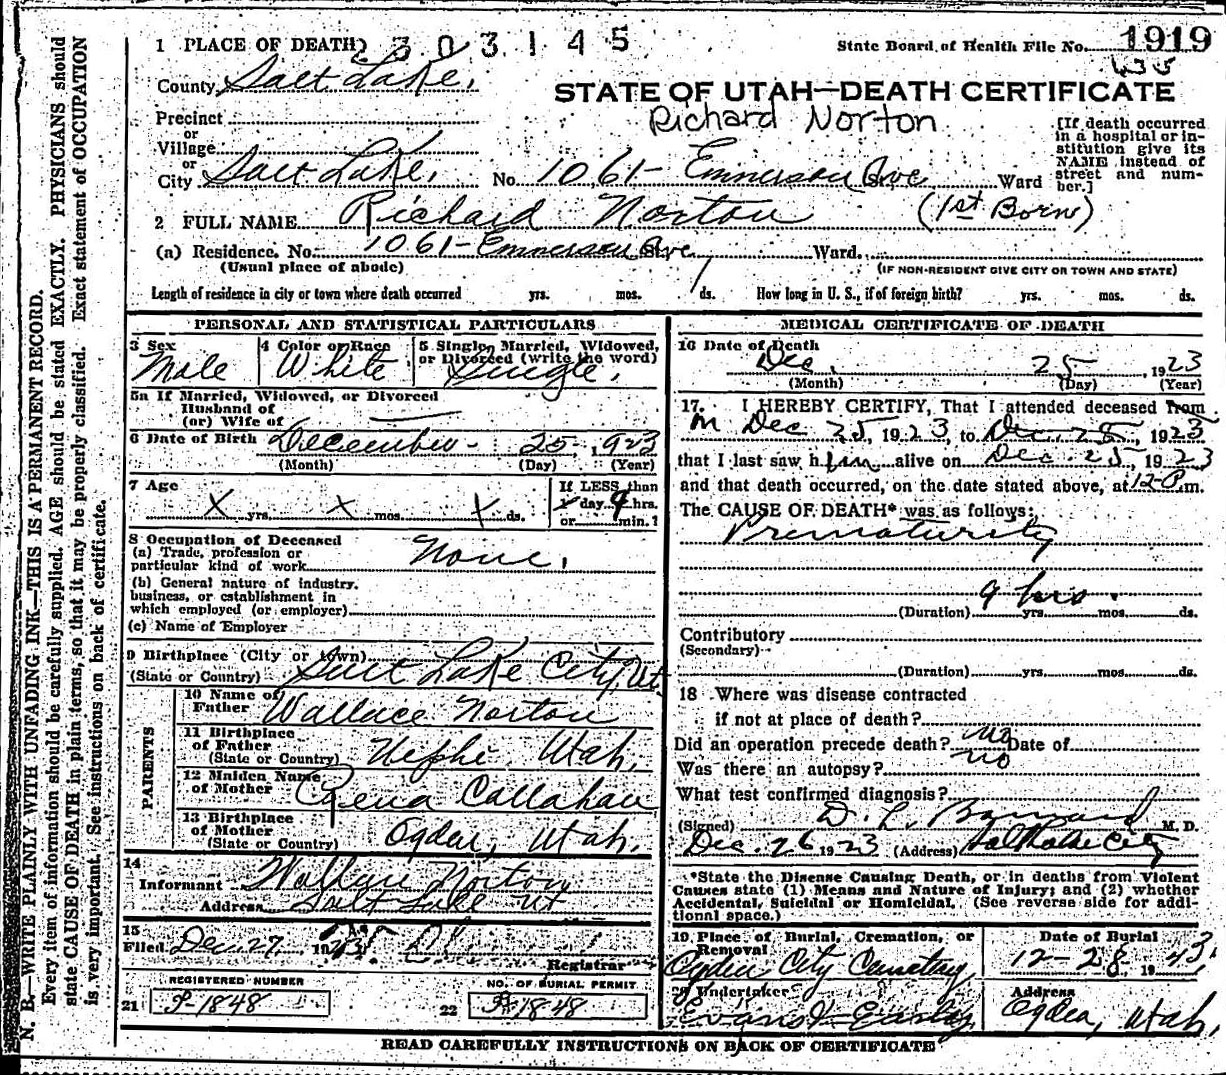 1 PLACE OF DEATH 2303145
State Board of Health File No. 1919
County Salt Lake.
435
STATE OF UTAH—DEATH CERTIFICATE
Richard Norton
Precinct
or
Village
or
City Salt Lake. No. 1061- Emmerson Ave Ward
[If death occurred
in a hospital or in-
stitution give its
NAME instead of
street and num-
ber.]
2 FULL NAME Richard Norton (1st Born)
(a) Residence. No. 1061- Emmerson Ave Ward.
(Usual place of abode)
(IF NON-RESIDENT GIVE CITY OR TOWN AND STATE)
Length of residence in city or town where death occurred yrs. mos. 1 ds. How long in U. S., if of foreign birth? yrs. mos. ds.
PERSONAL AND STATISTICAL PARTICULARS
3 Sex
Male
4 Color or Race
White
5 Single, Married, Widowed,
or Divorced (write the word)
Single.
5a If Married, Widowed, or Divorced
Husband of
(or) Wife of
6 Date of Birth December - 25, 1923
(Month) (Day) (Year)
7 Age
X yrs. X mos. X ds.
If LESS than
1 day 9 hrs.
or min.?
8 Occupation of Deceased
(a) Trade, profession or
particular kind of work None.
(b) General nature of industry,
business, or establishment in
which employed (or employer)
(c) Name of Employer
9 Birthplace (City or town)
(State or Country) Salt Lake City, Ut.
PARENTS
10 Name of
Father Wallace Norton
11 Birthplace
of Father
(State or Country) Nephi Utah.
12 Maiden Name
of Mother Rena Callahan
13 Birthplace
of Mother
(State or Country) Ogden, Utah.
14
Informant Wallace Norton
Address Salt Lake Ut
15
Filed Dec. 27, 1923
Registrar
REGISTERED NUMBER
21 P-1848
NO. OF BURIAL PERMIT
22 P-1848
MEDICAL CERTIFICATE OF DEATH
16 Date of Death
Dec. 25, 1923
(Month) (Day) (Year)
17. I HEREBY CERTIFY, That I attended deceased from
m Dec 25, 1923, to Dec. 25, 1923
that I last saw him alive on Dec. 25, 1923
and that death occurred, on the date stated above, at 12-P m.
The CAUSE OF DEATH* was as follows:
Prematurity
9 hrs.
(Duration) yrs. mos. ds.
Contributory
(Secondary)
(Duration) yrs. mos. ds.
18 Where was disease contracted
if not at place of death?
Did an operation precede death? no Date of
Was there an autopsy? no
What test confirmed diagnosis?
(Signed) D. L. Barnard M. D.
Dec. 26 1923 (Address) Salt Lake City
*State the Disease Causing Death, or in deaths from Violent
Causes state (1) Means and Nature of Injury; and (2) whether
Accidental, Suicidal or Homicidal. (See reverse side for addi-
tional space.)
19 Place of Burial, Cremation, or
Removal
Ogden City Cemetery
Date of Burial
12-28, 1923.
20 Undertaker
Evans & Early
Address
Ogden, Utah.
READ CAREFULLY INSTRUCTIONS ON BACK OF CERTIFICATE
N. B.—WRITE PLAINLY WITH UNFADING INK—THIS IS A PERMANENT RECORD.
Every item of information should be carefully supplied. AGE should be stated EXACTLY. PHYSICIANS should
state CAUSE OF DEATH in plain terms, so that it may be properly classified. Exact statement of OCCUPATION
is very important. See instructions on back of certificate.